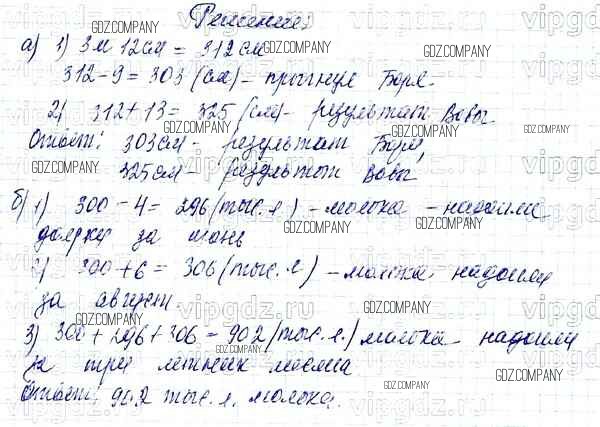 Решение:
а) 1) 3м 12см = 312см
312 - 9 = 303 (см) - прыгнул Боря.
2) 312 + 13 = 325 (см) - результат Вовы
Ответ: 303 см - результат Бори,
325 см - результат Вовы
б) 1) 300 - 4 = 296 (тыс. л) - молока - надоили
доярки за июнь
2) 300 + 6 = 306 (тыс. л) - молока надоили
за август.
3) 300 + 296 + 306 = 902 (тыс. л.) молока надоили
за три летних месяца
Ответ: 902 тыс. л. молока.